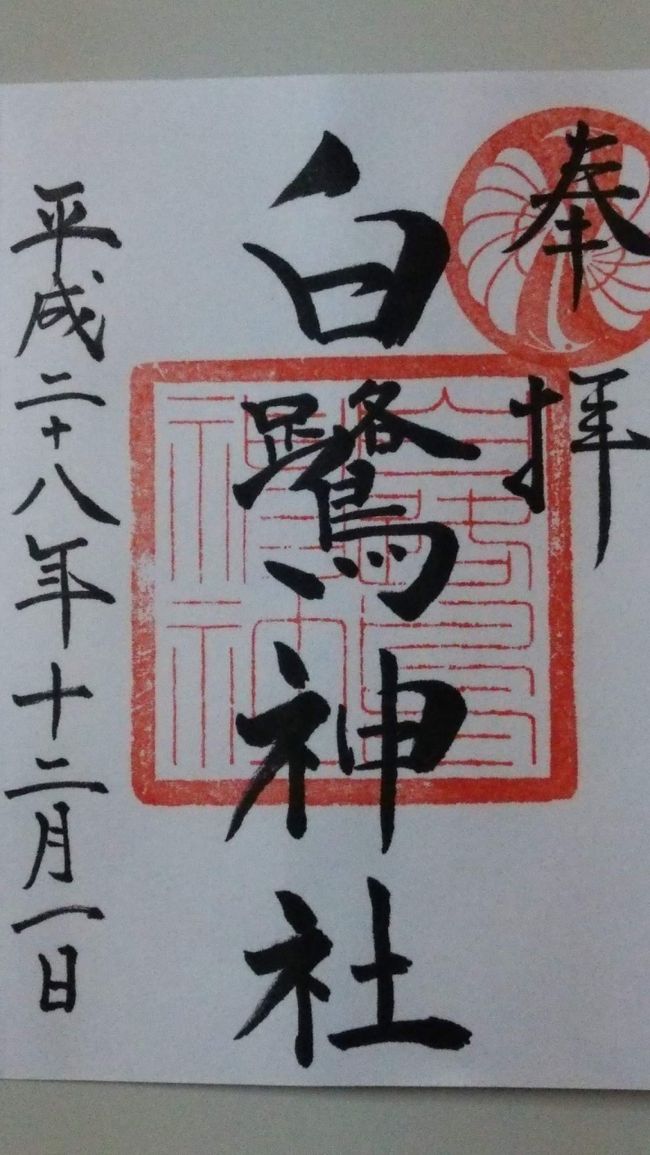 奉拝
白鷺神社
平成二十八年十二月一日